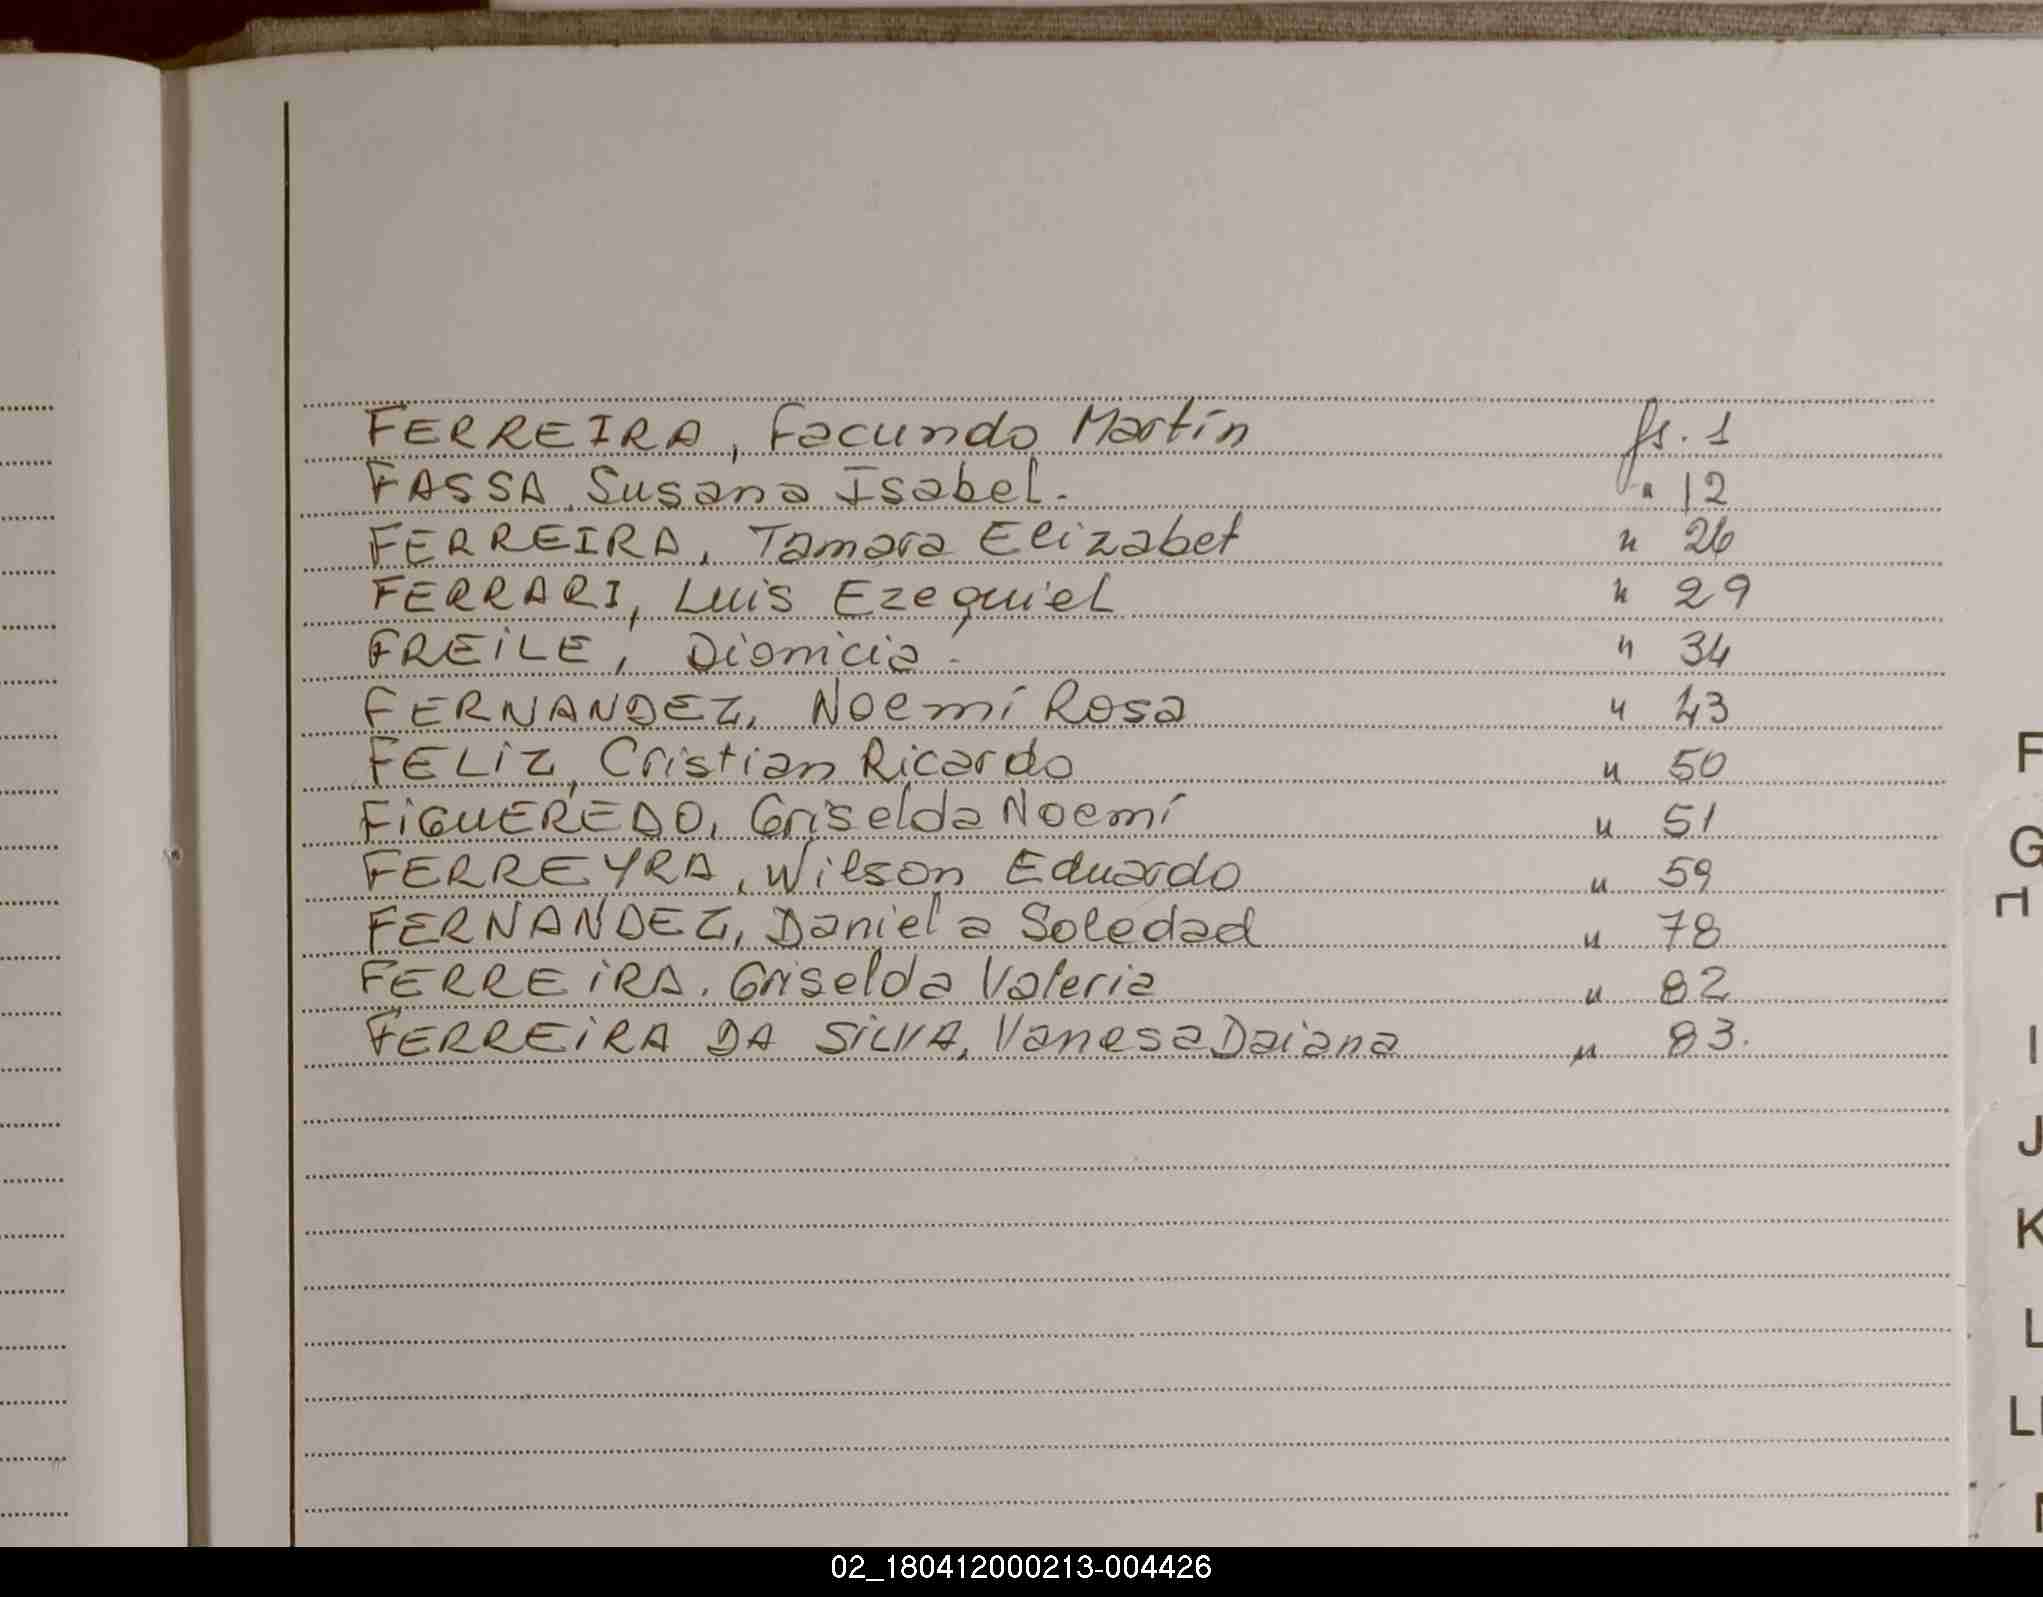 FERREIRA, Facundo Martín fs. 1
FASSA, Susana Isabel. " 12
FERREIRA, Tamara Elizabet " 26
FERRARI, Luis Ezequiel " 29
FREiLE, Dionicia. " 34
FERNANDEZ, Noemí Rosa " 43
FELiZ, Cristian Ricardo " 50
FiGUEREDO, Griselda Noemí " 51
FERREYRA, Wilson Eduardo " 59
FERNANDEZ, Daniela Soledad " 78
FERREiRA. Griselda Valeria " 82
FERREiRA DA SiLVA, Vanesa Daiana " 83.
F
G
H
I
J
K
L
LL
02_180412000213-004426